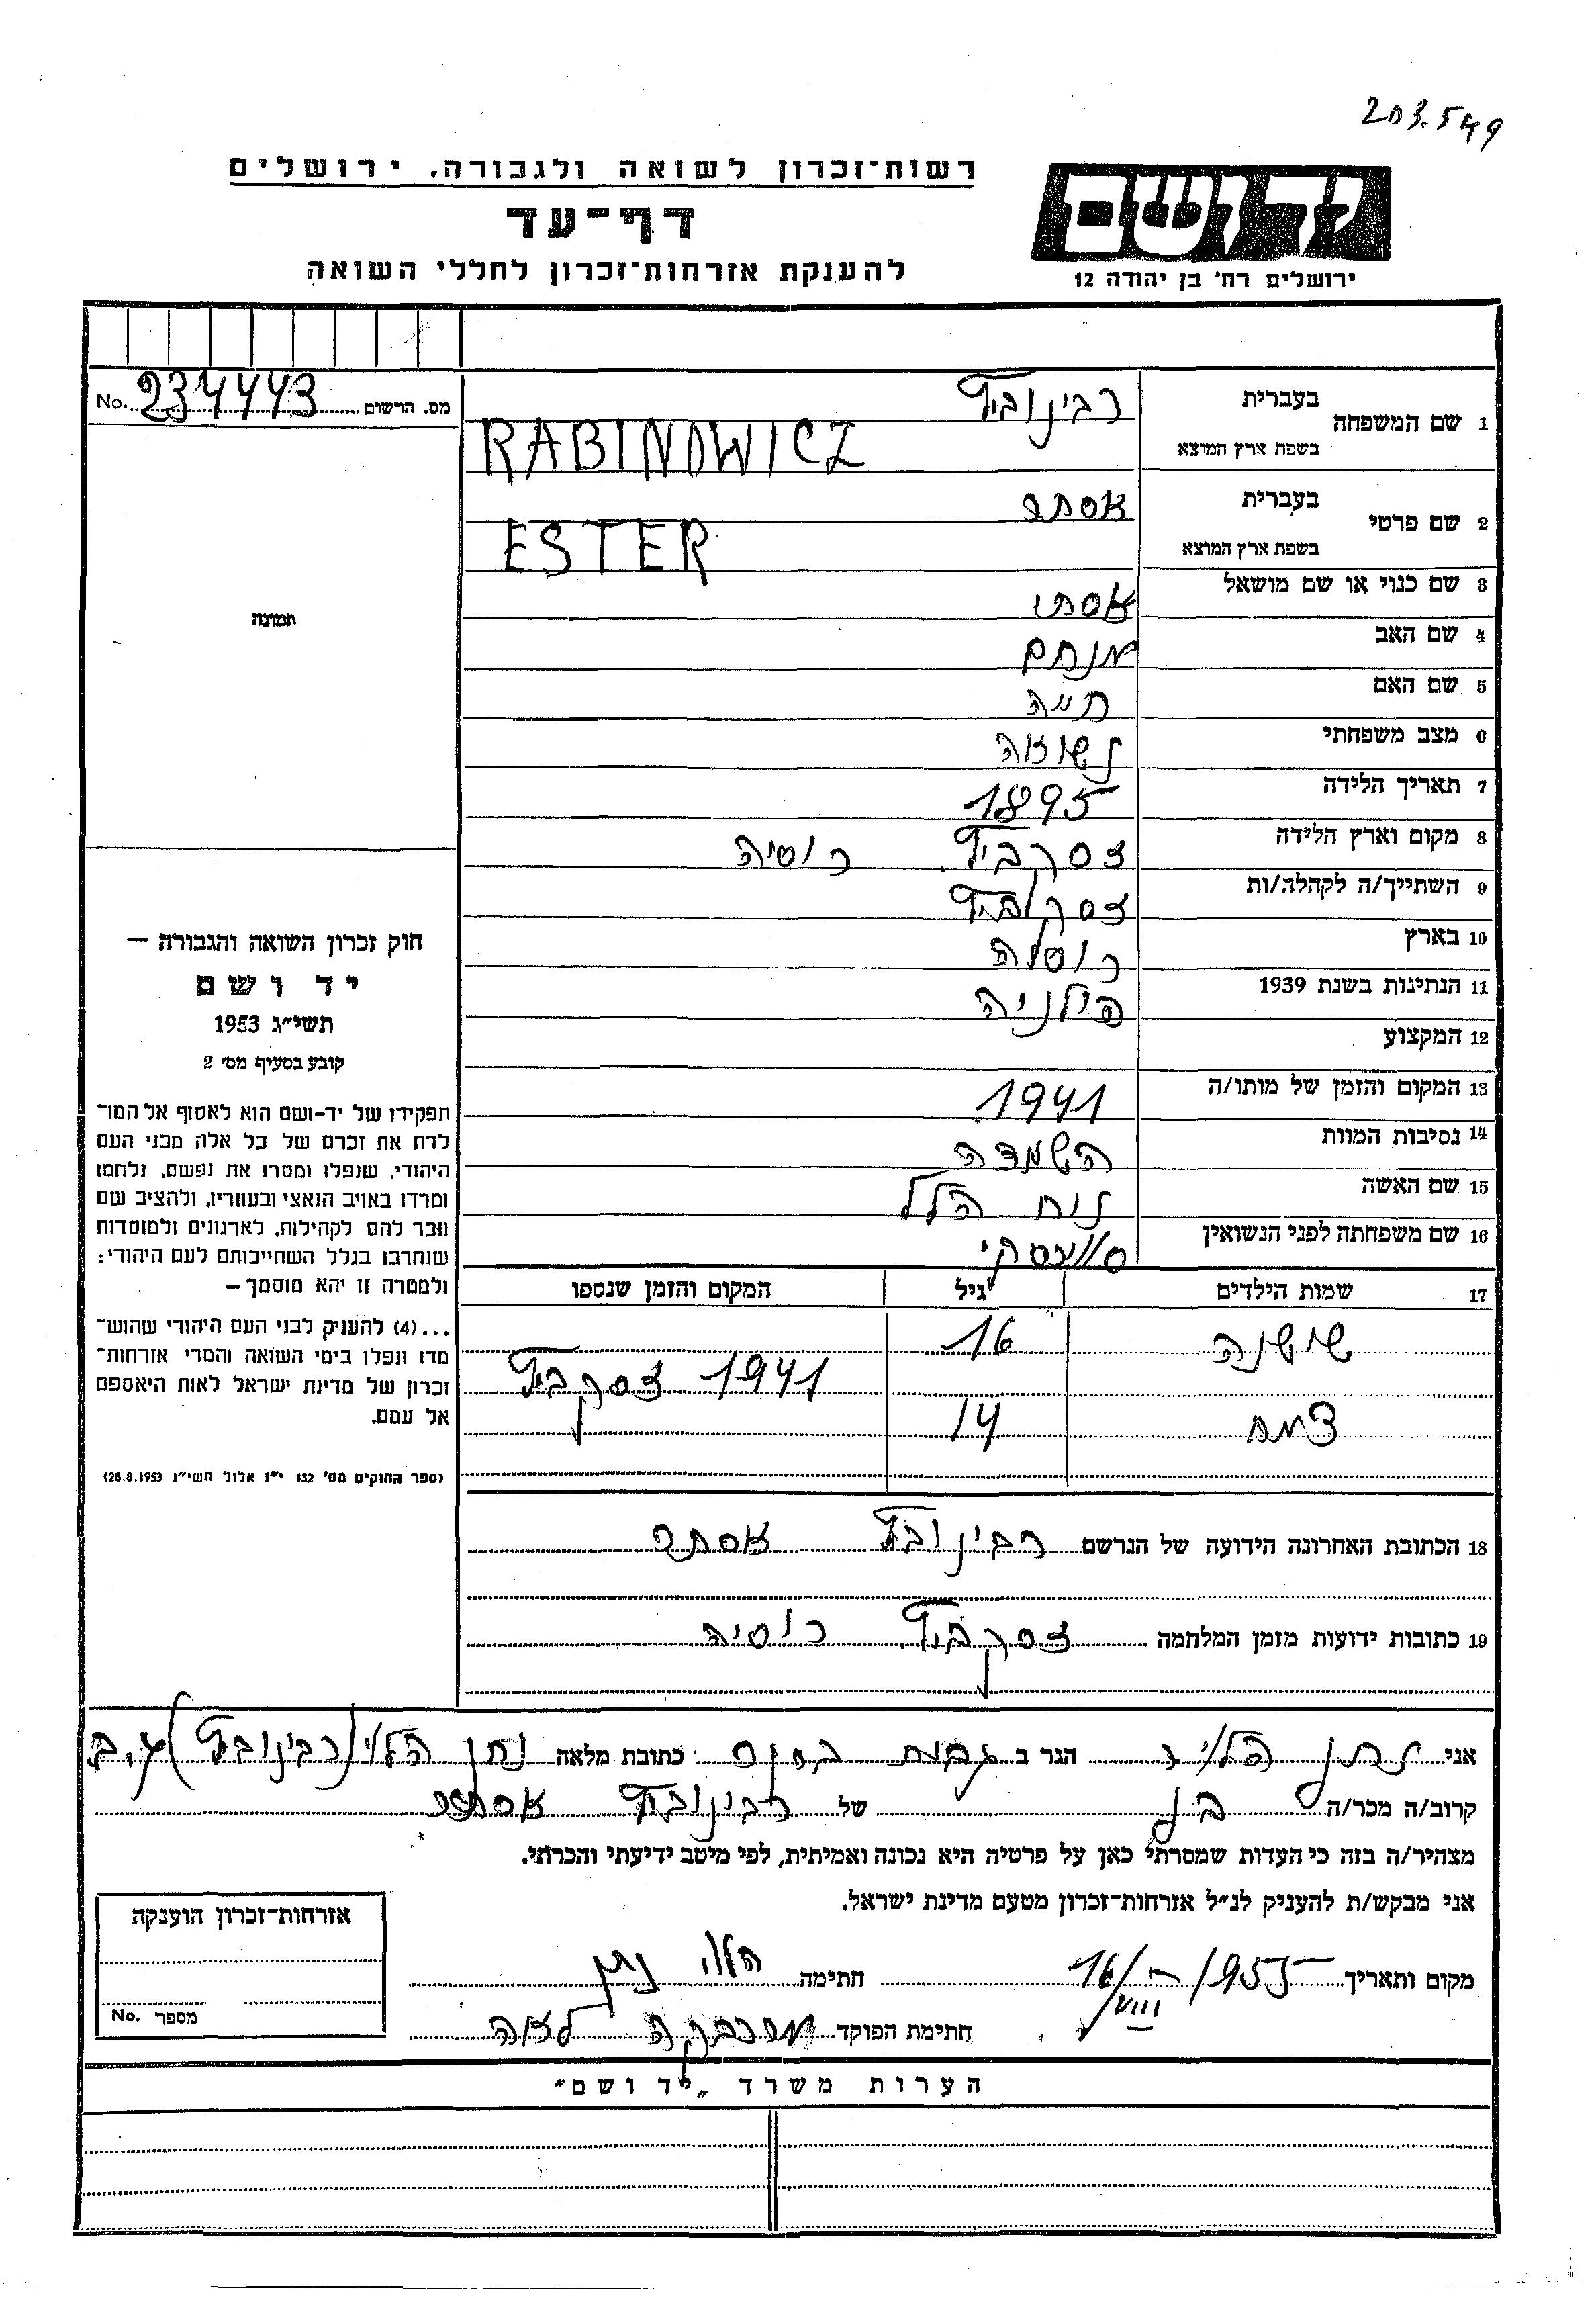 203.549
רשות־זכרון לשואה ולגבורה, ירושלים
דף־עד
להענקת אזרחות־זכרון לחללי השואה
יד ושם
ירושלים רח' בן יהודה 12
מס. הרשום 234443 No.
1 שם המשפחה
בעברית רבינוביץ
בשפת ארץ המוצא RABINOWICZ
2 שם פרטי
בעברית אסתר
בשפת ארץ המוצא ESTER
3 שם כנוי או שם מושאל אסתר
4 שם האב מנחם
5 שם האם חייה
6 מצב משפחתי נשואה
7 תאריך הלידה 1895
8 מקום וארץ הלידה רוסיה
9 השתייך/ה לקהלה/ות
10 בארץ רוסיה
11 הנתינות בשנת 1939 פולניה
12 המקצוע
13 המקום והזמן של מותו/ה 1941
14 נסיבות המוות השמדה
15 שם האשה נוח הלל
16 שם משפחתה לפני הנשואין
17 שמות הילדים גיל המקום והזמן שנספו
שושנה 16
1941
צמח 14
18 הכתובת האחרונה הידועה של הנרשם רבינוביץ אסתר
19 כתובות ידועות מזמן המלחמה רוסיה
תמונה
חוק זכרון השואה והגבורה —
יד ושם
תשי"ג 1953
קובע בסעיף מס' 2
תפקידו של יד-ושם הוא לאסוף אל המו־
לדת את זכרם של כל אלה מבני העם
היהודי, שנפלו ומסרו את נפשם, נלחמו
ומרדו באויב הנאצי ובעוזריו, ולהציב שם
וזכר להם לקהילות, לארגונים ולמוסדות
שנחרבו בגלל השתייכותם לעם היהודי;
ולמטרה זו יהא מוסמך —
...(4) להעניק לבני העם היהודי שהוש־
מדו ונפלו בימי השואה והמרי אזרחות־
זכרון של מדינת ישראל לאות היאספם
אל עמם.
(ספר החוקים מס' 132 י"ז אלול תשי"ג 28.8.1953)
אני נתן הלוי הגר ב כתובת מלאה נתן הלוי (רבינוביץ)
קרוב/ה מכר/ה בן של רבינוביץ אסתר
מצהיר/ה בזה כי העדות שמסרתי כאן על פרטיה היא נכונה ואמיתית, לפי מיטב ידיעתי והכרתי.
אני מבקש/ת להעניק לנ"ל אזרחות־זכרון מטעם מדינת ישראל.
מקום ותאריך 16/VIII 1955 חתימה הלוי נתן
חתימת הפוקד לאה
אזרחות־זכרון הוענקה
מספר No.
הערות משרד „יד ושם"